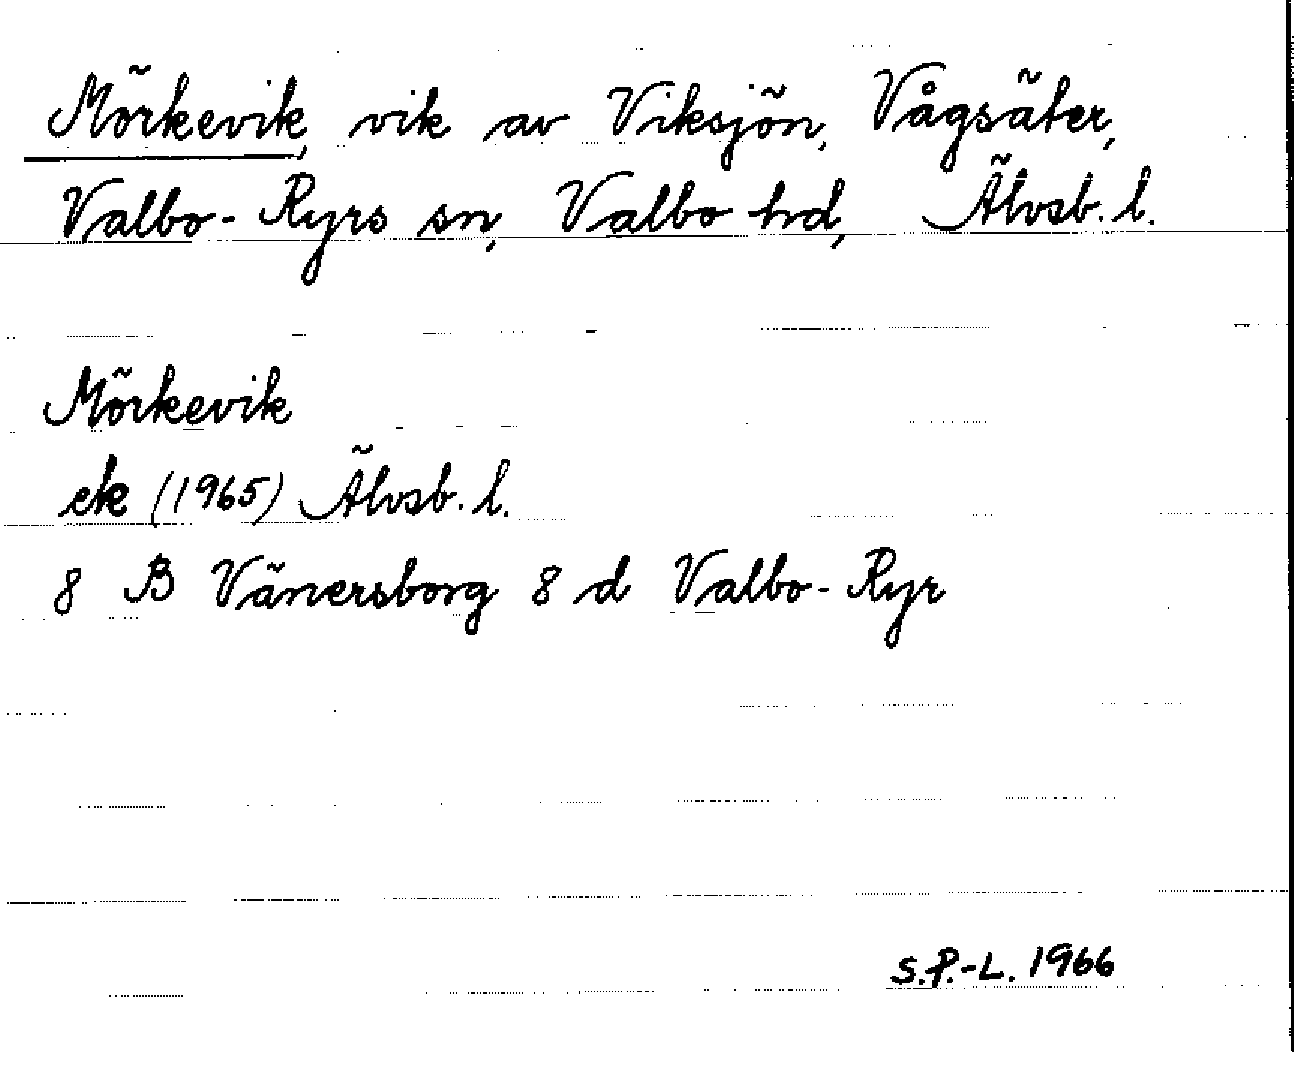 Mörkevik, vik av Viksjön, Vågsäter,
Valbo-Ryrs sn, Valbo hd, Älvsb. l.
Mörkevik
ek (1965) Älvsb. l.
8 B Vänersborg 8 d Valbo-Ryr
S.P.-L. 1966